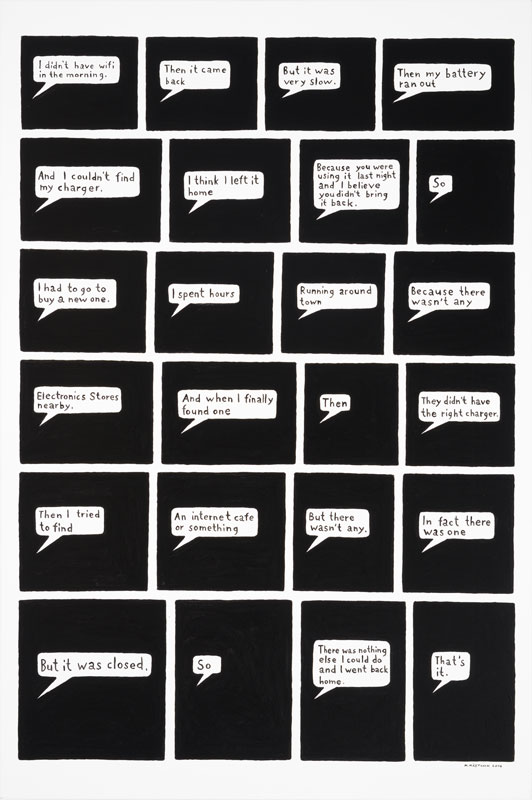 I didn't have wifi
in the morning.
Then it came
back
But it was
very slow.
Then my battery
ran out
And I couldn't find
my charger.
I think I left it
home
Because you were
using it last night
and I believe
you didn't bring
it back.
So
I had to go to
buy a new one.
I spent hours
Running around
town
Because there
wasn't any
Electronics Stores
nearby.
And when I finally
found one
Then
They didn't have
the right charger.
Then I tried
to find
An internet cafe
or something
But there
wasn't any.
In fact there
was one
But it was closed.
So
There was nothing
else I could do
and I went back
home.
That's
it.